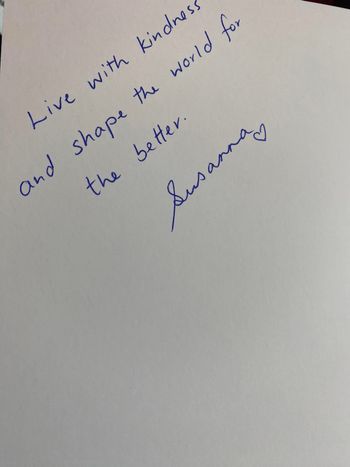 Live with kindness
and shape the world for
the better.
Susanna♡